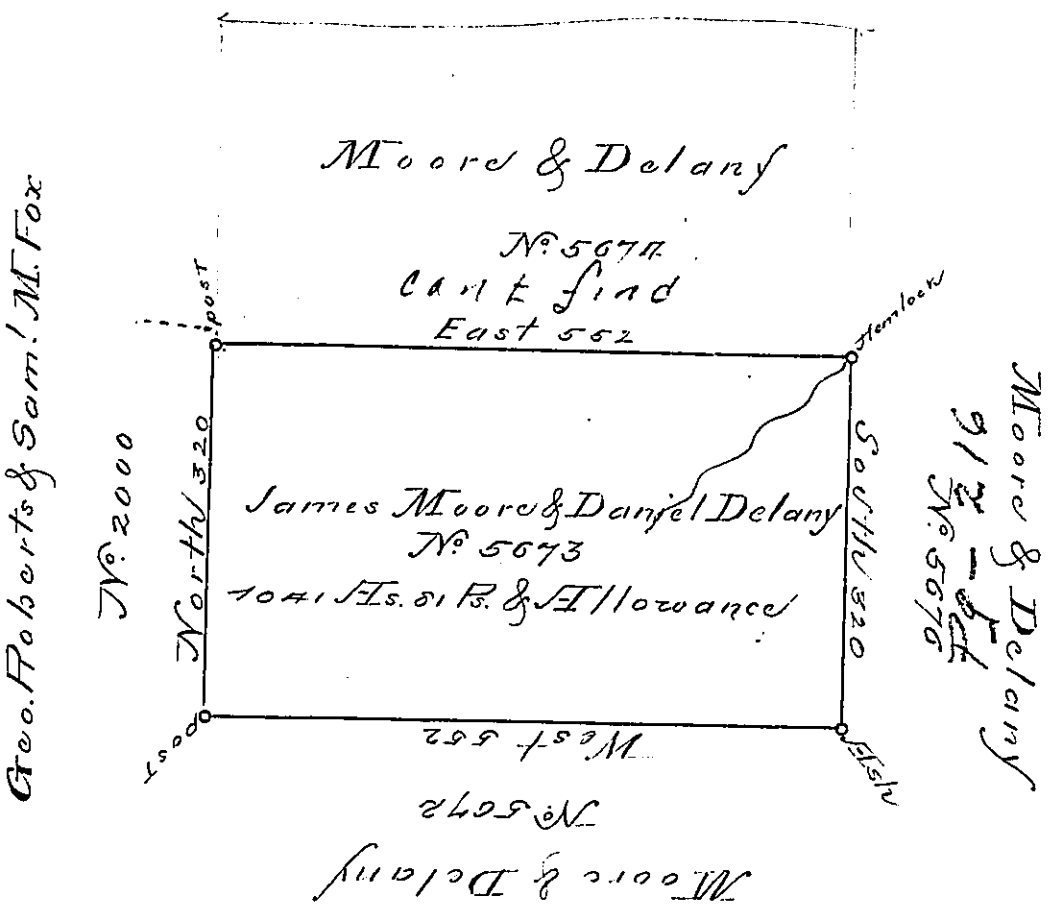 Moore & Delany
No. 5674
Can't find
East 552
post
Hemlock
Geo. Roberts & Sam'l M. Fox
No. 2000
North 320
James Moore & Daniel Delany
No. 5673
1041 As. 81 Ps. & Allowance
South 320
Moore & Delany
No. 5676
post
Ash
West 552
No. 5672
Moore & Delany